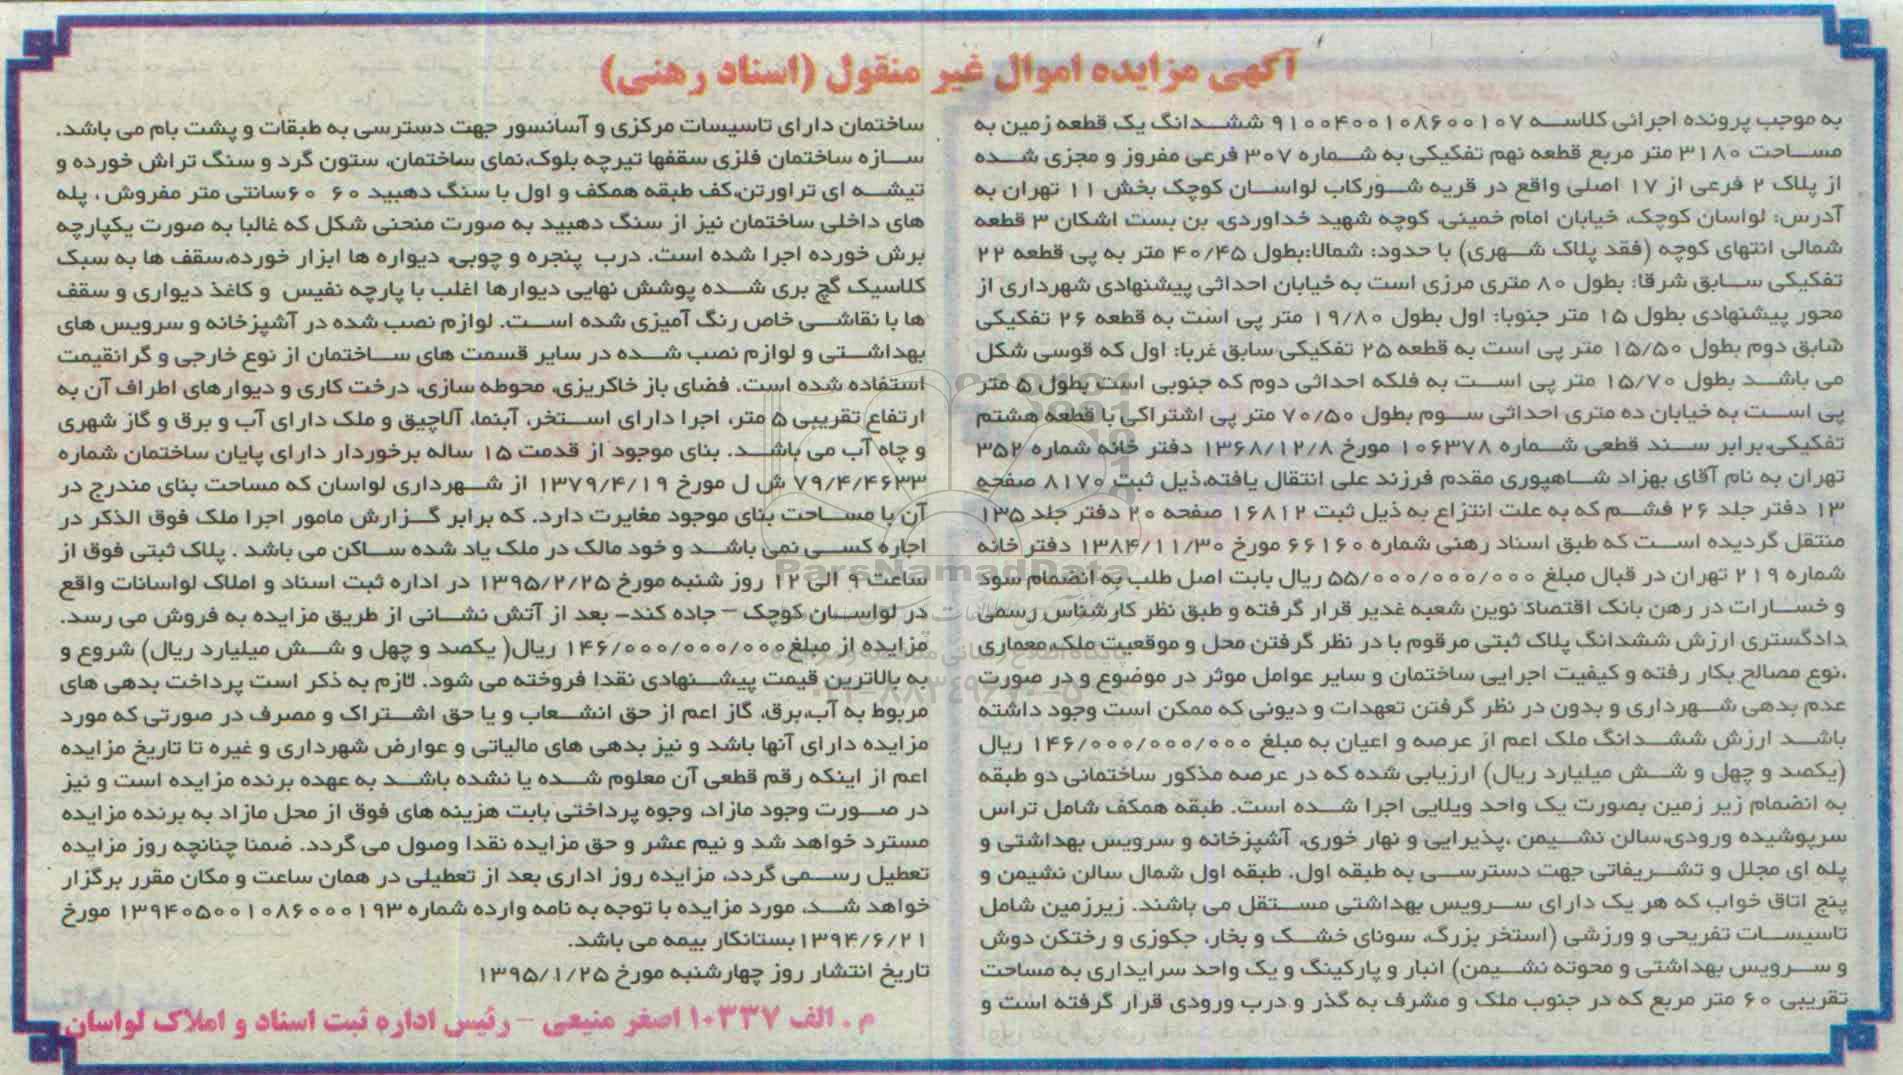 آگهی مزایده اموال غیر منقول (اسناد رهنی)
به موجب پرونده اجرائی کلاسه ۹۱۰۰۴۰۰۱۰۸۶۰۰۱۰۷ ششدانگ یک قطعه زمین به
مساحت ۳۱۸۰ متر مربع قطعه نهم تفکیکی به شماره ۳۰۷ فرعی مفروز و مجزی شده
از پلاک ۲ فرعی از ۱۷ اصلی واقع در قریه شورکاب لواسان کوچک بخش ۱۱ تهران به
آدرس: لواسان کوچک، خیابان امام خمینی، کوچه شهید خداوردی، بن بست اشکان ۳ قطعه
شمالی انتهای کوچه (فقد پلاک شهری) با حدود: شمالا:بطول ۴۰/۴۵ متر به پی قطعه ۲۲
تفکیکی سابق شرقا: بطول ۸۰ متری مرزی است به خیابان احداثی پیشنهادی شهرداری از
محور پیشنهادی بطول ۱۵ متر جنوبا: اول بطول ۱۹/۸۰ متر پی است به قطعه ۲۶ تفکیکی
شابق دوم بطول ۱۵/۵۰ متر پی است به قطعه ۲۵ تفکیکی سابق غربا: اول که قوسی شکل
می باشد بطول ۱۵/۷۰ متر پی است به فلکه احداثی دوم که جنوبی است بطول ۵ متر
پی است به خیابان ده متری احداثی سوم بطول ۷۰/۵۰ متر پی اشتراکی با قطعه هشتم
تفکیکی،برابر سند قطعی شماره ۱۰۶۳۷۸ مورخ ۱۳۶۸/۱۲/۸ دفتر خانه شماره ۳۵۲
تهران به نام آقای بهزاد شاهپوری مقدم فرزند علی انتقال یافته،ذیل ثبت ۸۱۷۰ صفحه
۱۳ دفتر جلد ۲۶ فشم که به علت انتزاع به ذیل ثبت ۱۶۸۱۲ صفحه ۲۰ دفتر جلد ۱۳۵
منتقل گردیده است که طبق اسناد رهنی شماره ۶۶۱۶۰ مورخ ۱۳۸۴/۱۱/۳۰ دفتر خانه
شماره ۲۱۹ تهران در قبال مبلغ ۵۵/۰۰۰/۰۰۰/۰۰۰ ریال بابت اصل طلب به انضمام سود
و خسارات در رهن بانک اقتصاد نوین شعبه غدیر قرار گرفته و طبق نظر کارشناس رسمی
دادگستری ارزش ششدانگ پلاک ثبتی مرقوم با در نظر گرفتن محل و موقعیت ملک،معماری
،نوع مصالح بکار رفته و کیفیت اجرایی ساختمان و سایر عوامل موثر در موضوع و در صورت
عدم بدهی شهرداری و بدون در نظر گرفتن تعهدات و دیونی که ممکن است وجود داشته
باشد ارزش ششدانگ ملک اعم از عرصه و اعیان به مبلغ ۱۴۶/۰۰۰/۰۰۰/۰۰۰ ریال
(یکصد و چهل و شش میلیارد ریال) ارزیابی شده که در عرصه مذکور ساختمانی دو طبقه
به انضمام زیر زمین بصورت یک واحد ویلایی اجرا شده است. طبقه همکف شامل تراس
سرپوشیده ورودی،سالن نشیمن ،پذیرایی و نهار خوری، آشپزخانه و سرویس بهداشتی و
پله ای مجلل و تشریفاتی جهت دسترسی به طبقه اول، طبقه اول شمال سالن نشیمن و
پنج اتاق خواب که هر یک دارای سرویس بهداشتی مستقل می باشند. زیرزمین شامل
تاسیسات تفریحی و ورزشی (استخر بزرگ، سونای خشک و بخار، جکوزی و رختکن دوش
و سرویس بهداشتی و محوته نشیمن) انبار و پارکینگ و یک واحد سرایداری به مساحت
تقریبی ۶۰ متر مربع که در جنوب ملک و مشرف به گذر و درب ورودی قرار گرفته است و
ساختمان دارای تاسیسات مرکزی و آسانسور جهت دسترسی به طبقات و پشت بام می باشد.
سازه ساختمان فلزی سقفها تیرچه بلوک،نمای ساختمان، ستون گرد و سنگ تراش خورده و
تیشه ای تراورتن،کف طبقه همکف و اول با سنگ دهبید ۶۰ ۶۰سانتی متر مفروش ، پله
های داخلی ساختمان نیز از سنگ دهبید به صورت منحنی شکل که غالبا به صورت یکپارچه
برش خورده اجرا شده است. درب پنجره و چوبی، دیواره ها ابزار خورده،سقف ها به سبک
کلاسیک گچ بری شده پوشش نهایی دیوارها اغلب با پارچه نفیس و کاغذ دیواری و سقف
ها با نقاشی خاص رنگ آمیزی شده است. لوازم نصب شده در آشپزخانه و سرویس های
بهداشتی و لوازم نصب شده در سایر قسمت های ساختمان از نوع خارجی و گرانقیمت
استفاده شده است. فضای باز خاکریزی، محوطه سازی، درخت کاری و دیوارهای اطراف آن به
ارتفاع تقریبی ۵ متر، اجرا دارای استخر، آبنما، آلاچیق و ملک دارای آب و برق و گاز شهری
و چاه آب می باشد. بنای موجود از قدمت ۱۵ ساله برخوردار دارای پایان ساختمان شماره
۷۹/۴/۴۶۳۳ ش ل مورخ ۱۳۷۹/۴/۱۹ از شهرداری لواسان که مساحت بنای مندرج در
آن با مساحت بنای موجود مغایرت دارد. که برابر گزارش مامور اجرا ملک فوق الذکر در
اجاره کسی نمی باشد و خود مالک در ملک یاد شده ساکن می باشد . پلاک ثبتی فوق از
ساعت ۹ الی ۱۲ روز شنبه مورخ ۱۳۹۵/۲/۲۵ در اداره ثبت اسناد و املاک لواسانات واقع
در لواسان کوچک – جاده کند– بعد از آتش نشانی از طریق مزایده به فروش می رسد.
مزایده از مبلغ۱۴۶/۰۰۰/۰۰۰/۰۰۰ ریال( یکصد و چهل و شش میلیارد ریال) شروع و
به بالاترین قیمت پیشنهادی نقدا فروخته می شود. لازم به ذکر است پرداخت بدهی های
مربوط به آب،برق، گاز اعم از حق انشعاب و یا حق اشتراک و مصرف در صورتی که مورد
مزایده دارای آنها باشد و نیز بدهی های مالیاتی و عوارض شهرداری و غیره تا تاریخ مزایده
اعم از اینکه رقم قطعی آن معلوم شده یا نشده باشد به عهده برنده مزایده است و نیز
در صورت وجود مازاد، وجوه پرداختی بابت هزینه های فوق از محل مازاد به برنده مزایده
مسترد خواهد شد و نیم عشر و حق مزایده نقدا وصول می گردد. ضمنا چنانچه روز مزایده
تعطیل رسمی گردد، مزایده روز اداری بعد از تعطیلی در همان ساعت و مکان مقرر برگزار
خواهد شد، مورد مزایده با توجه به نامه وارده شماره ۱۳۹۴۰۵۰۰۱۰۸۶۰۰۰۱۹۳ مورخ
۱۳۹۴/۶/۲۱ بستانکار بیمه می باشد.
تاریخ انتشار روز چهارشنبه مورخ ۱۳۹۵/۱/۲۵
م . الف ۱۰۳۳۷ اصغر منیعی – رئیس اداره ثبت اسناد و املاک لواسان
ParsNamadData